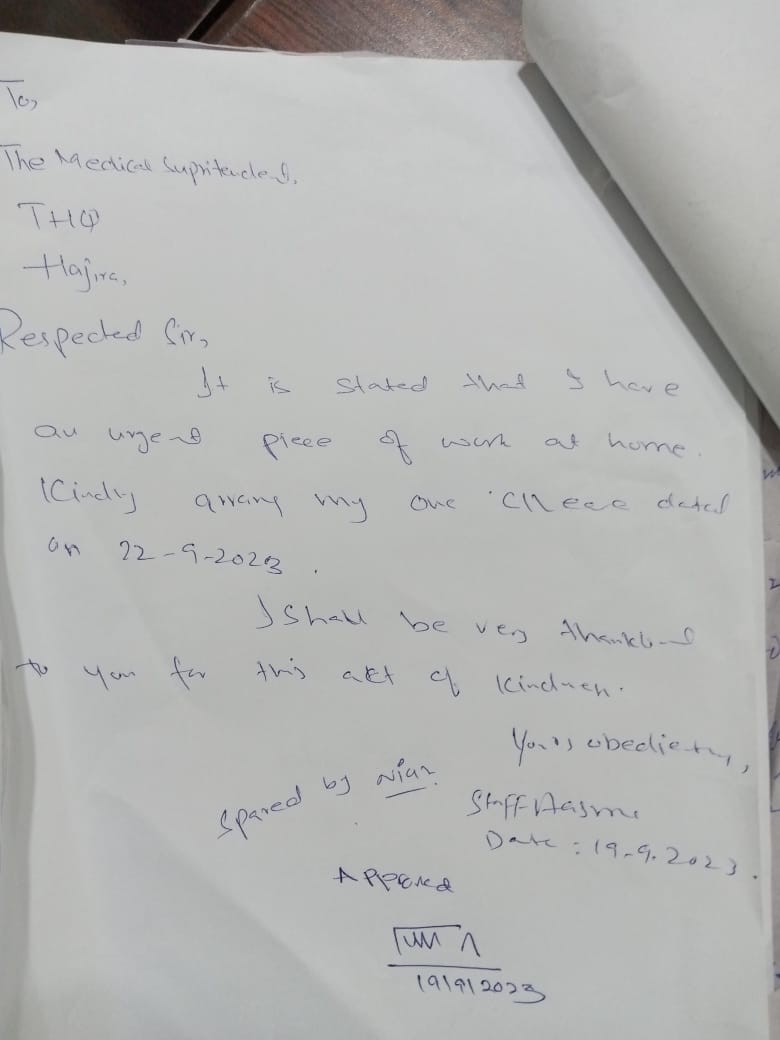 To,
The Medical Supritendent,
THQ
Hajira,
Respected Sir,
It is stated that I have
an urgent piece of work at home.
Kindly arrang my one dated
on 22-9-2023.
I Shall be very thankful
to you for this act of kindness.
Yours obediently,
spared by
Staff Aasma
Date: 19-9-2023.
Approved
19/9/2023